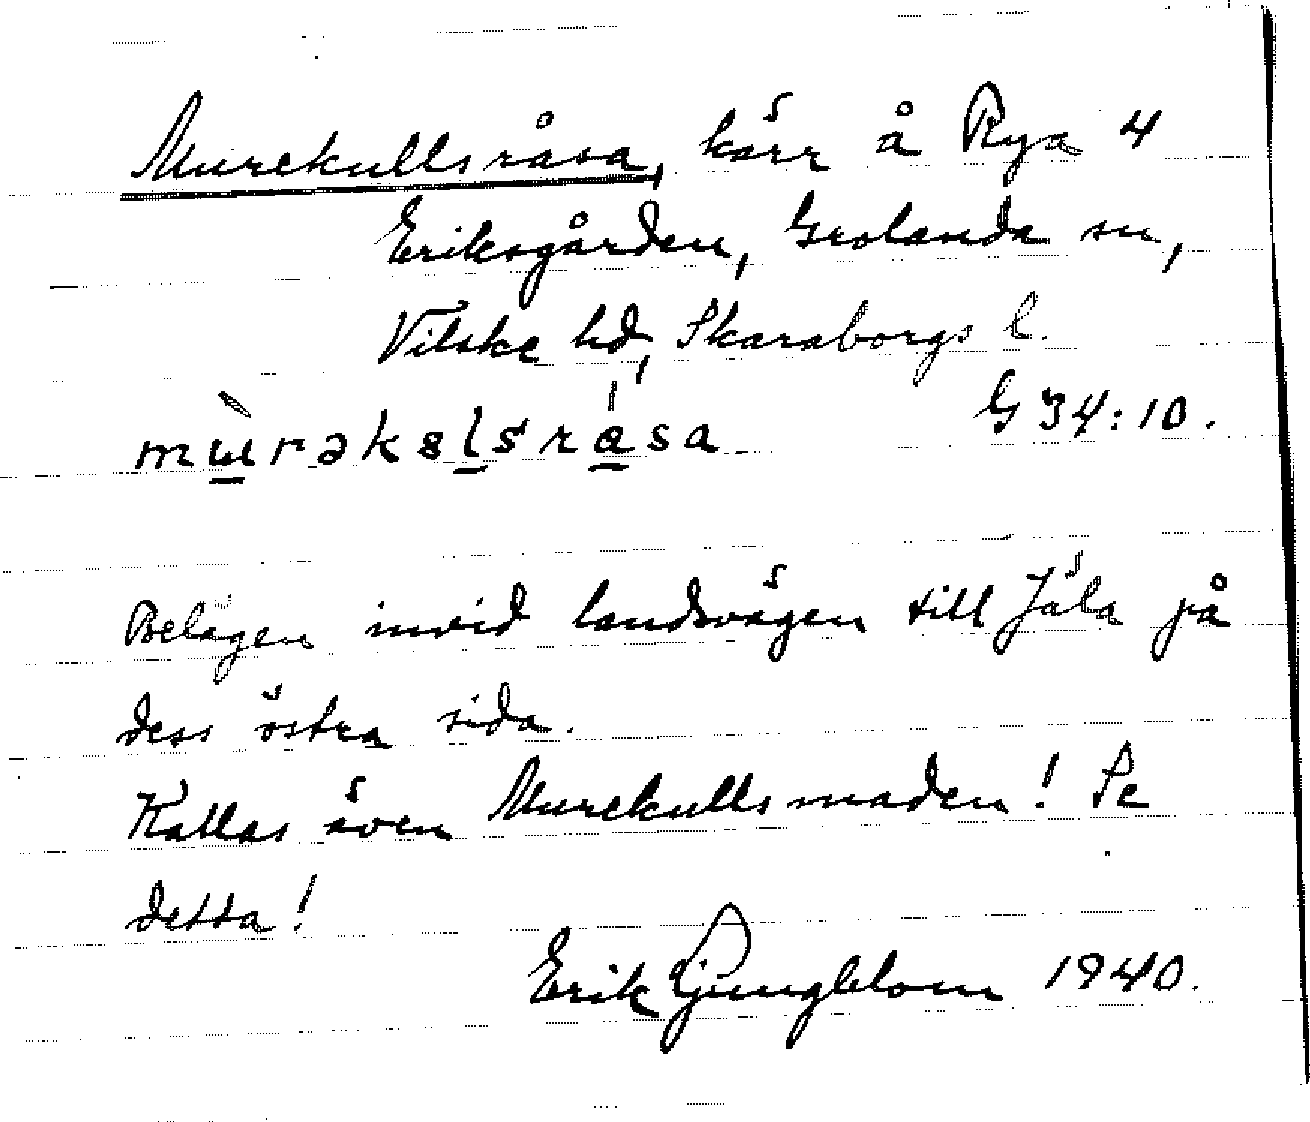 Murekullsråsa, kärr å Rya 4
Eriksgården, Grolanda sn,
Vilske hd, Skaraborgs l.
G 34:10.
Belägen invid landsvägen till Jäla på
dess östra sida.
Kallas även Murekullsmaden! Se
detta!
Erik Ljungblom 1940.